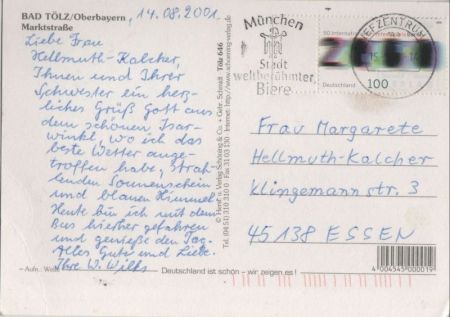 BAD TÖLZ/Oberbayern, 14.08.2001.
Marktstraße
Liebe Frau
Hellmuth-Kalcher,
Ihnen und Ihrer
Schwester ein herz-
liches Grüß Gott aus
dem schönen Isar-
winkel, wo ich das
beste Wetter ange-
troffen habe, strah-
lenden Sonnenschein
und blauen Himmel.
Heute bin ich mit dem
Bus hierher gefahren
und genieße den Tag.
Alles Gute und Liebe.
Ihre W. Wilks
– Aufn.:
Deutschland ist schön – wir zeigen es!
© Herst. u. Verlag Schöning & Co. + Gebr. Schmidt
Tölz 646
Tel. (04 51) 310 310 Fax 31 03 130 Internet: http://www.schoening-verlag.de
München
Stadt
weltberühmter
Biere
BRIEFZENTRUM
50 Internationale
Deutschland
100
Frau Margarete
Hellmuth-Kalcher
Klingemannstr. 3
45138 ESSEN
4 004545 000019